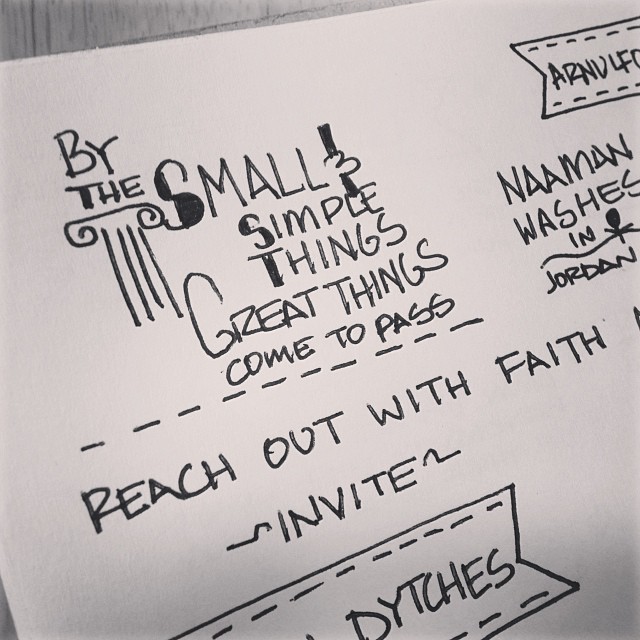 BY
THE
SMALL &
SIMPLE
THINGS
GREAT THINGS
COME TO PASS
REACH OUT WITH FAITH
~INVITE~
DYTCHES
NAAMAN
WASHES
IN
JORDAN